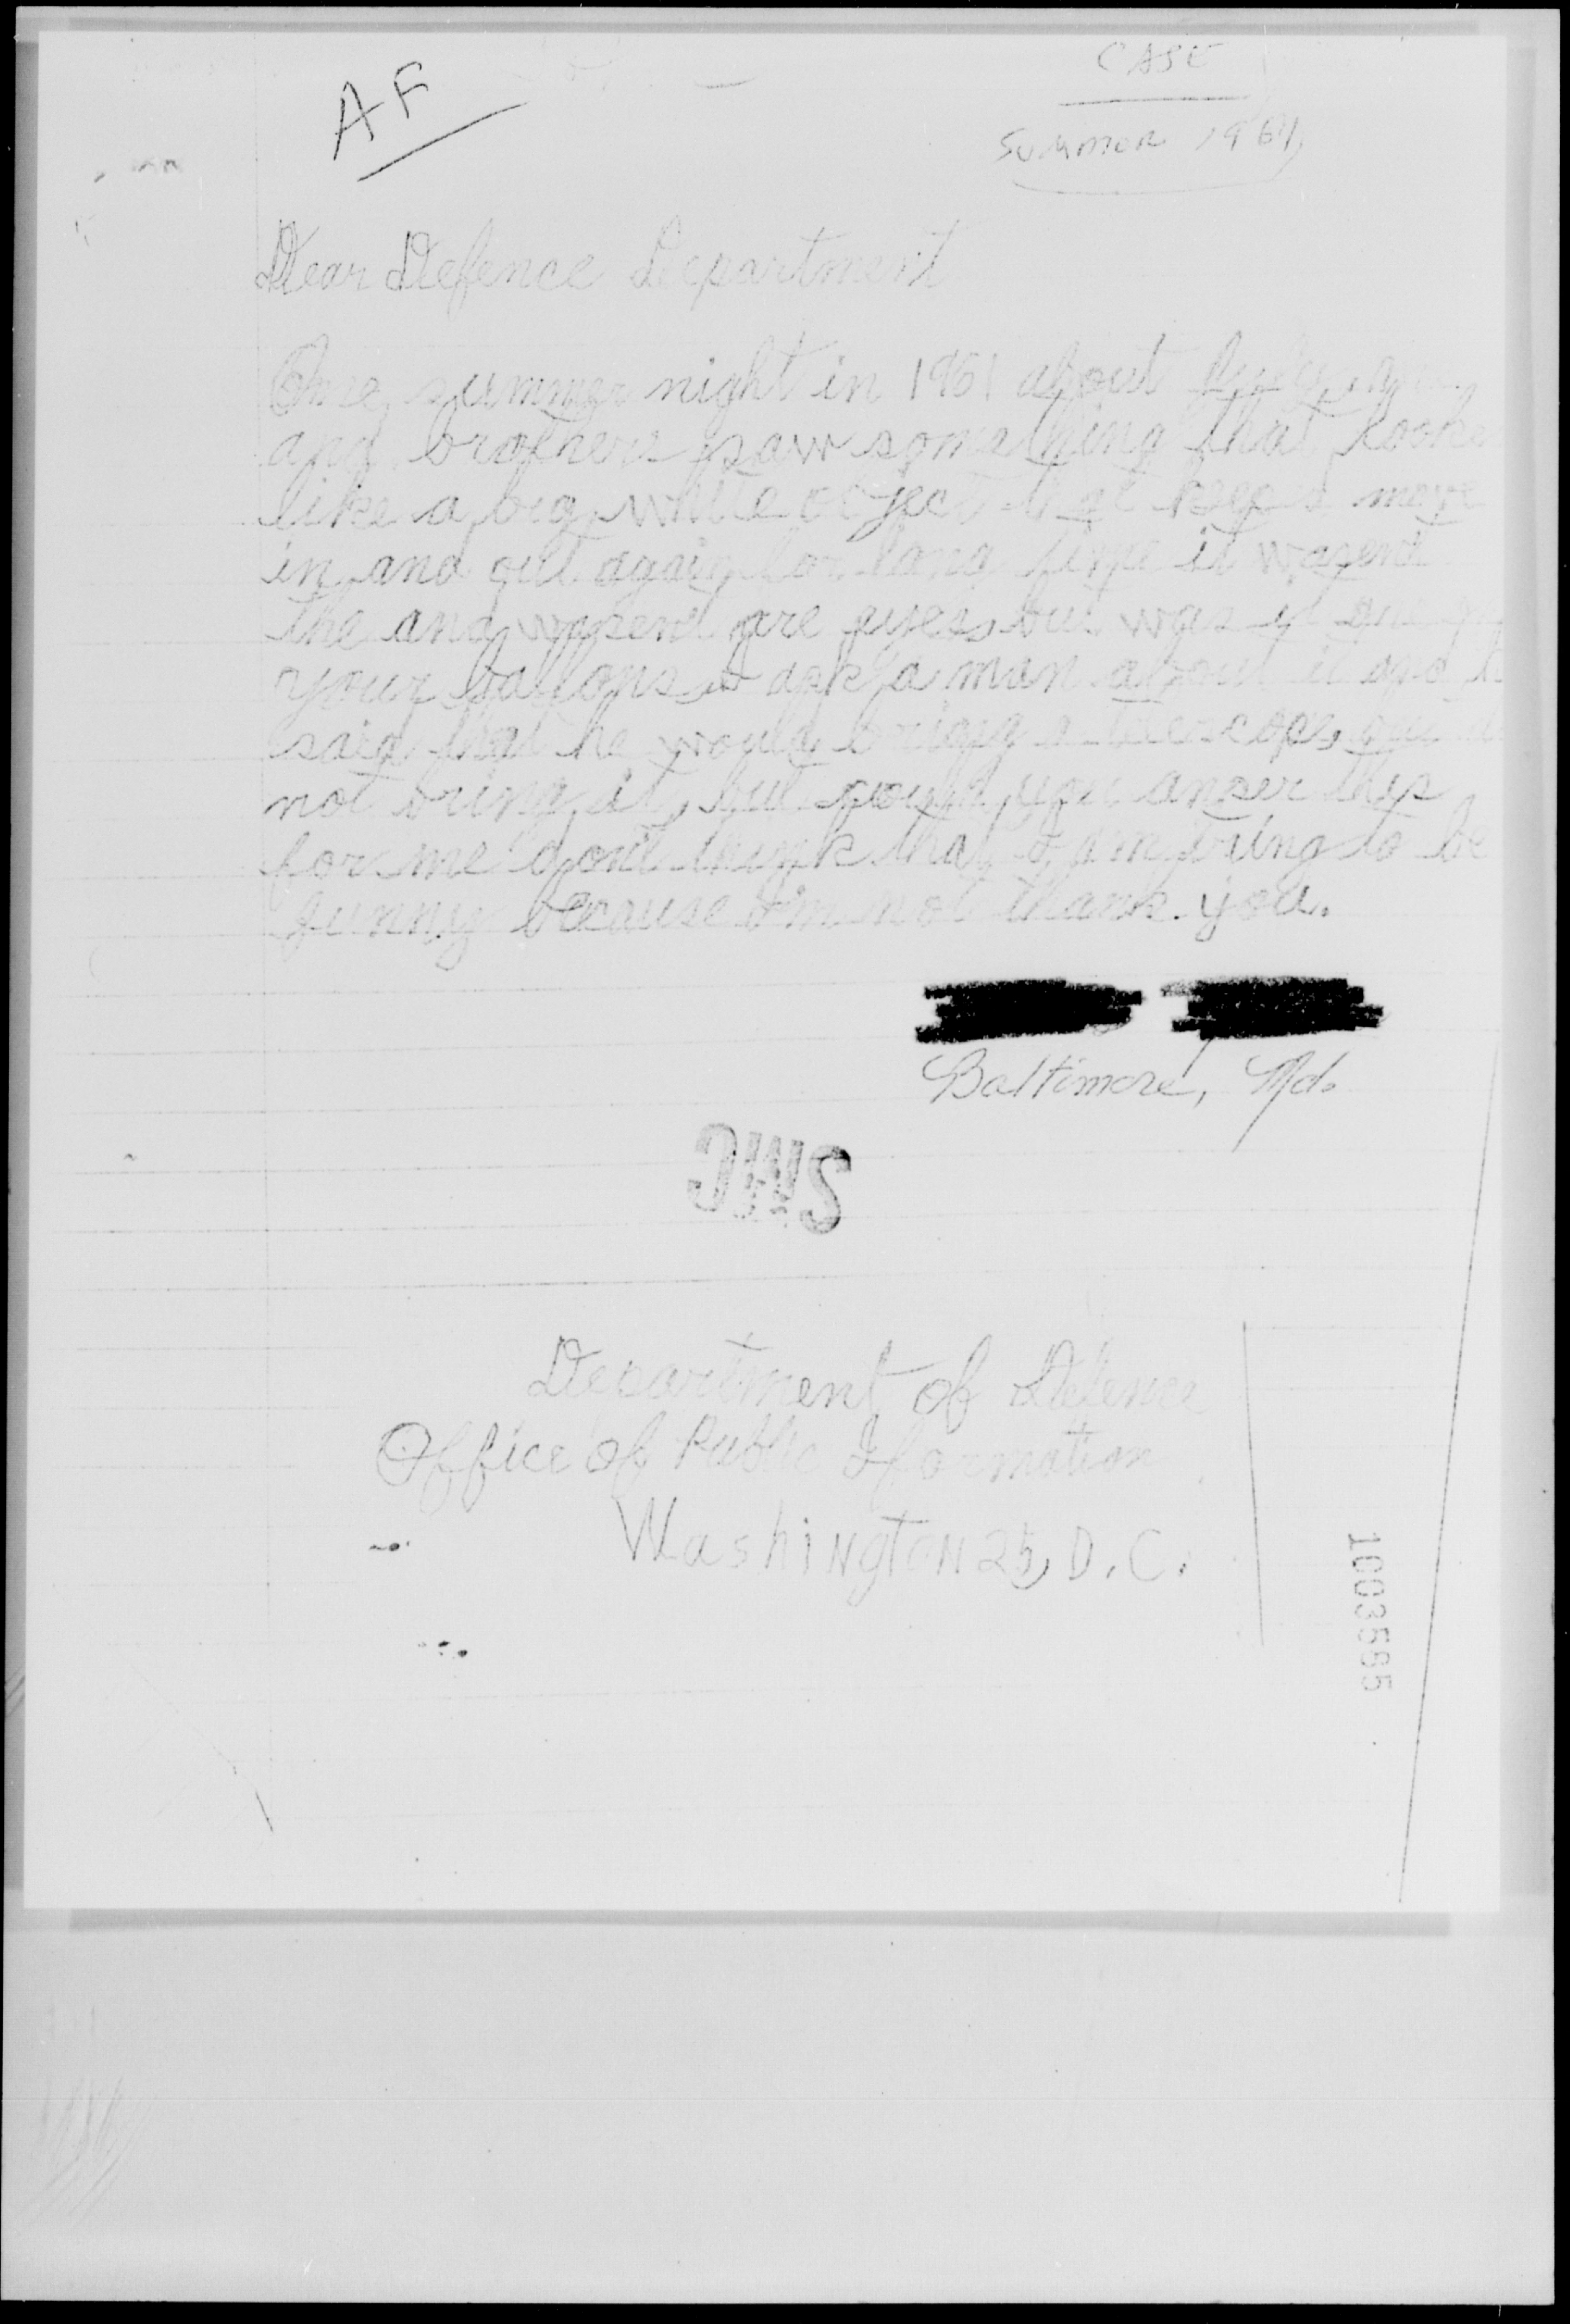 AF
CASE
Summer 1961
Dear Defence Department
One summer night in 1961 about July
and brothers saw something that looke
like a big white object that keeps move
in and out again for long time it wasent
the and wasent are eyes, but was it
your ballons I ask a man about it and
said that he would bring a telescope,
not bring it, but would you anser this
for me don't think that I am triing to be
funny because I'm not thank you.
Baltimore, Md.
SMC
Department of Defence
Office of Public Iformation
Washington 25, D.C.
1003585